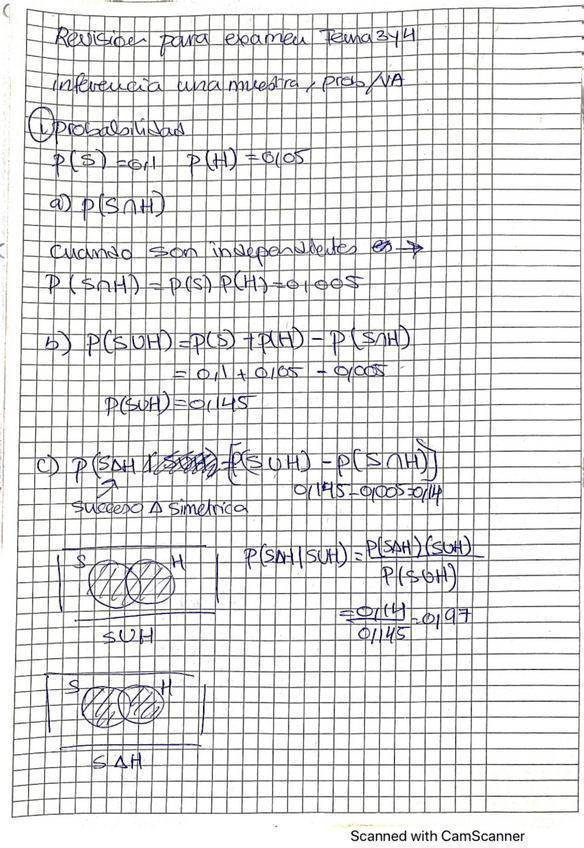 Revision para examen Tema 3 y 4
inferencia una muestra, prob/VA
1. probabilidad
P(S) = 0,1 P(H) = 0,05
a) P(S∩H)
cuando son independientes es →
P(S∩H) = P(S) P(H) = 0,005
b) P(SUH) = P(S) + P(H) - P(S∩H)
= 0,1 + 0,05 - 0,005
P(SUH) = 0,145
c) P(SΔH) = [P(SUH) - P(S∩H)]
0,145 - 0,005 = 0,14
suceso Δ simetrica
S H
P(SΔH|SUH) = P(SΔH)(SUH)
P(SUH)
= 0,14 = 0,97
0,145
SUH
S H
SΔH
Scanned with CamScanner